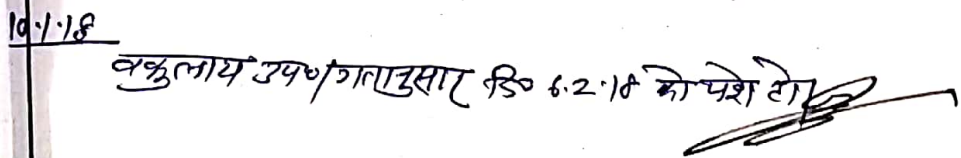 10.1.18
वकुलाय उप०/गतानुसार दि० 6.2.18 को पेश हो